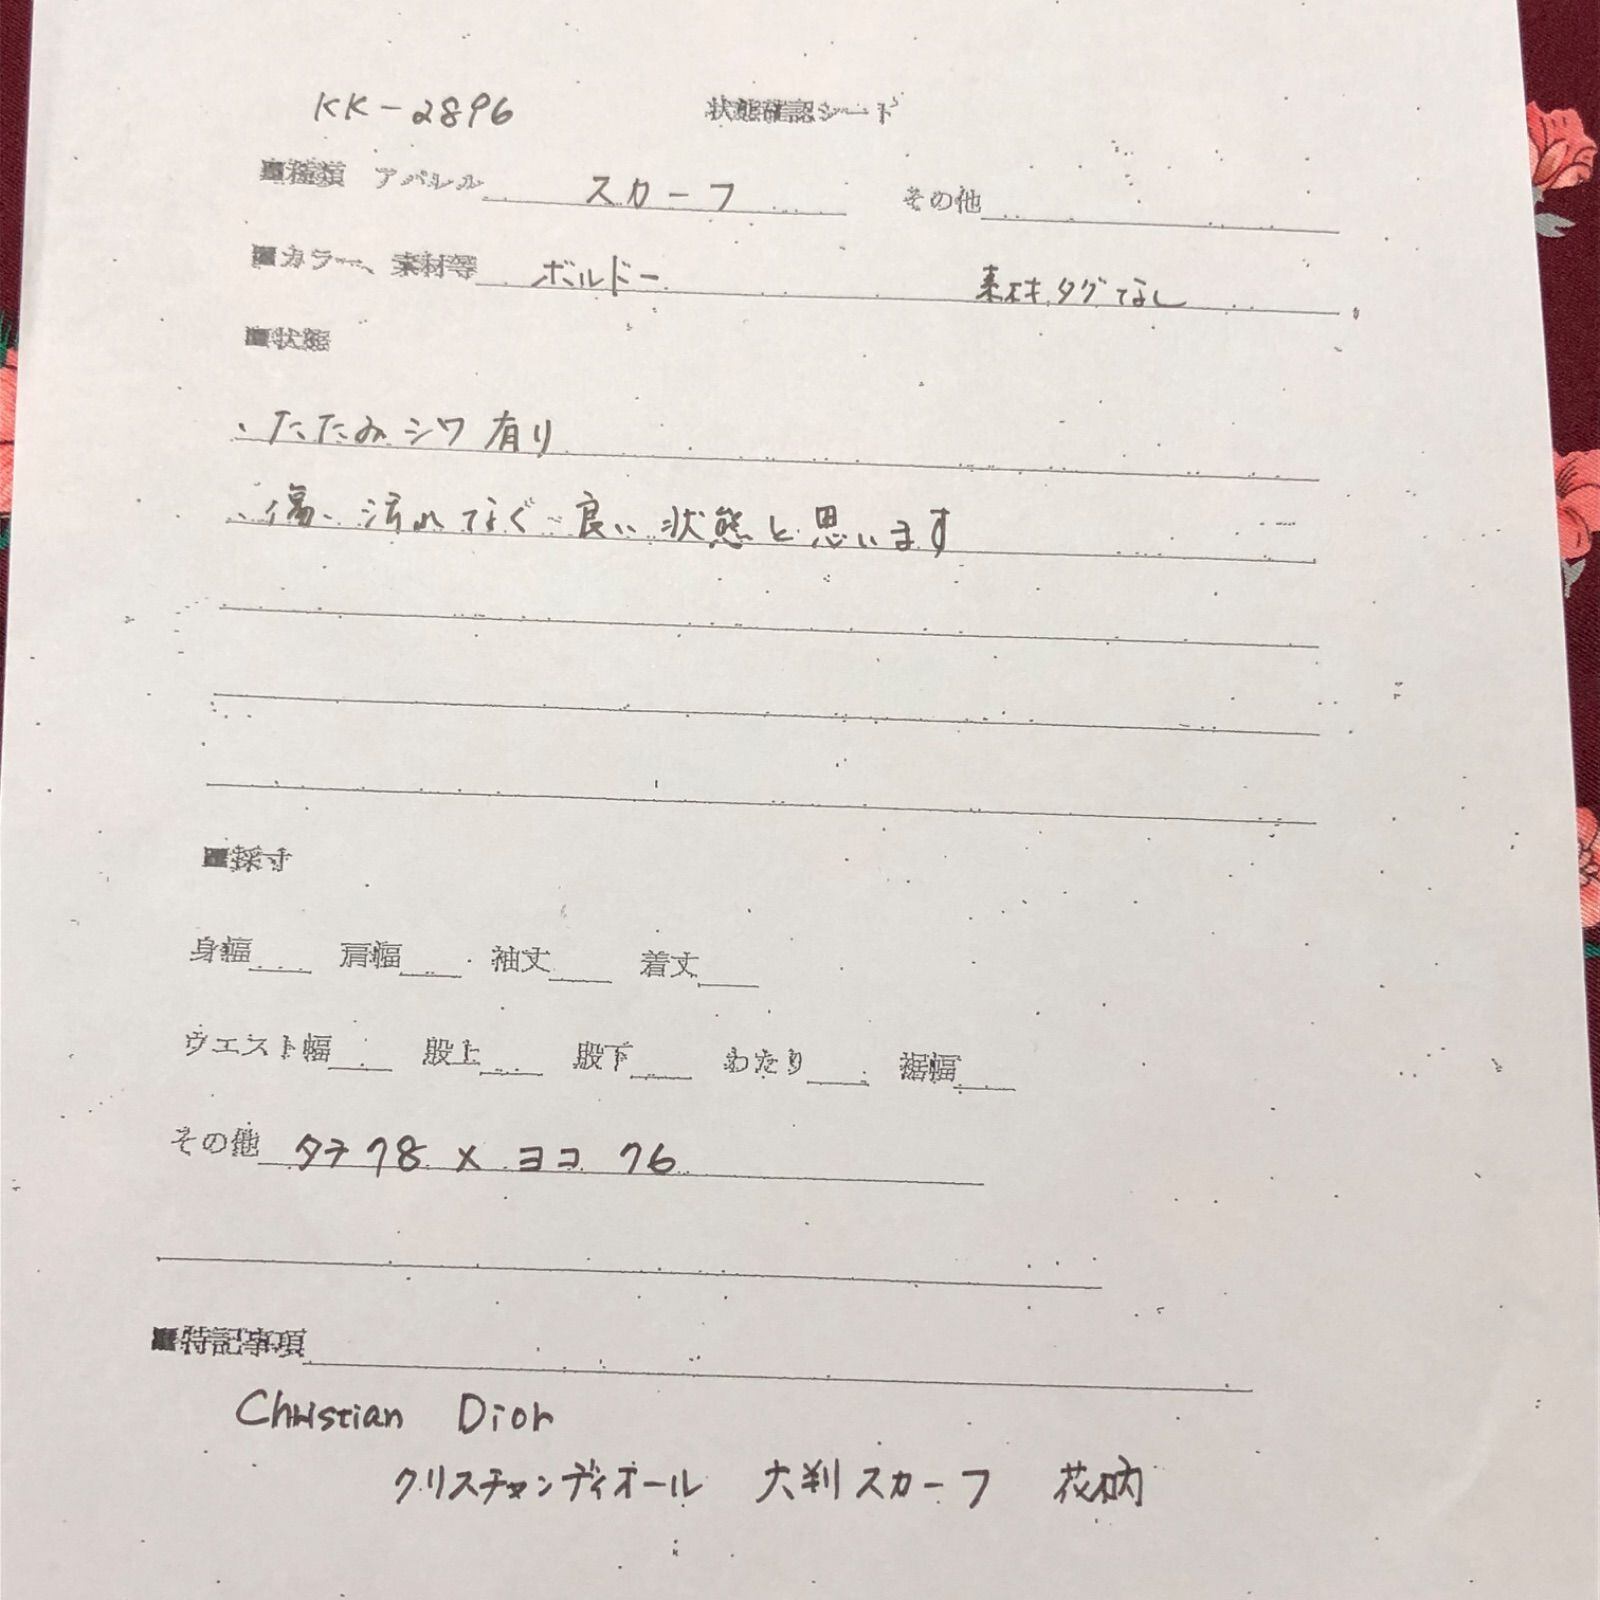 KK-2896 状態確認シート
■種類 アパレル スカーフ その他
■カラー、素材等 ボルドー 素材タグなし
■状態
・たたみシワ有り
・傷、汚れなく、良い状態と思います
■採寸
身幅 肩幅 袖丈 着丈
ウエスト幅 股上 股下 わたり 裾幅
その他 タテ78×ヨコ76
■特記事項
Christian Dior
クリスチャンディオール 大判スカーフ 花柄